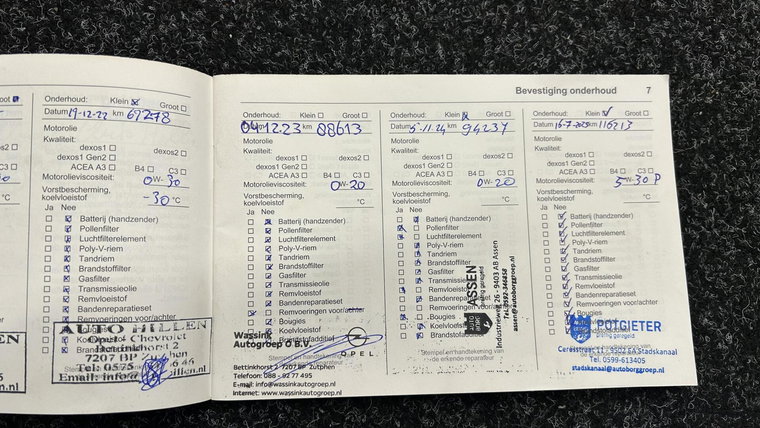 Bevestiging onderhoud 7
Onderhoud: Klein Groot
Datum 19-12-22 km 67278
Motorolie
Kwaliteit:
dexos1
dexos2
dexos1 Gen2
ACEA A3 B4 C3
Motorolieviscositeit:
0W-30
Vorstbescherming,
koelvloeistof -30 °C
Ja Nee
Batterij (handzender)
Pollenfilter
Luchtfilterelement
Poly-V-riem
Tandriem
Brandstoffilter
Gasfilter
Transmissieolie
Remvloeistof
Bandenreparatieset
Remvoeringen voor/achter
AUTO HILLEN
Opel - Chevrolet
Bettinkhorst 2
7207 BP Zutphen
Tel: 0575
Email: info@
Onderhoud: Klein Groot
Datum 04-12-23 km 88613
Motorolie
Kwaliteit:
dexos1
dexos2
dexos1 Gen2
ACEA A3 B4 C3
Motorolieviscositeit:
0W-20
Vorstbescherming,
koelvloeistof °C
Ja Nee
Batterij (handzender)
Pollenfilter
Luchtfilterelement
Poly-V-riem
Tandriem
Brandstoffilter
Gasfilter
Transmissieolie
Remvloeistof
Bandenreparatieset
Remvoeringen voor/achter
Bougies
Koelvloeistof
Brandstoffilter
Wassink
Autogroep O B.V.
OPEL
Bettinkhorst 2 7207 BP Zutphen
Telefoon: 088 - 92 77 495
E-mail: info@wassinkautogroep.nl
Internet: www.wassinkautogroep.nl
Onderhoud: Klein Groot
Datum 5-11-24 km 94237
Motorolie
Kwaliteit:
dexos1
dexos2
dexos1 Gen2
ACEA A3 B4 C3
Motorolieviscositeit:
0W-20
Vorstbescherming,
koelvloeistof °C
Ja Nee
Batterij (handzender)
Pollenfilter
Luchtfilterelement
Poly-V-riem
Tandriem
Brandstoffilter
Gasfilter
Transmissieolie
Remvloeistof
Bandenreparatieset
Remvoeringen
Bougies
Koelvloeistof
Brandstoffilter
ASSEN
Industrieweg 26 - 9403 AB Assen
assen@autoborggroep.nl
Onderhoud: Klein Groot
Datum 16-7-2025 km 116213
Motorolie
Kwaliteit:
dexos1
dexos2
dexos1 Gen2
ACEA A3 B4 C3
Motorolieviscositeit:
5W-30 P
Vorstbescherming,
koelvloeistof °C
Ja Nee
Batterij (handzender)
Pollenfilter
Luchtfilterelement
Poly-V-riem
Tandriem
Brandstoffilter
Gasfilter
Transmissieolie
Remvloeistof
Bandenreparatieset
Remvoeringen voor/achter
Bougies
POTGIETER
Stadskanaal
Tel. 0599-613405
stadskanaal@autoborggroep.nl